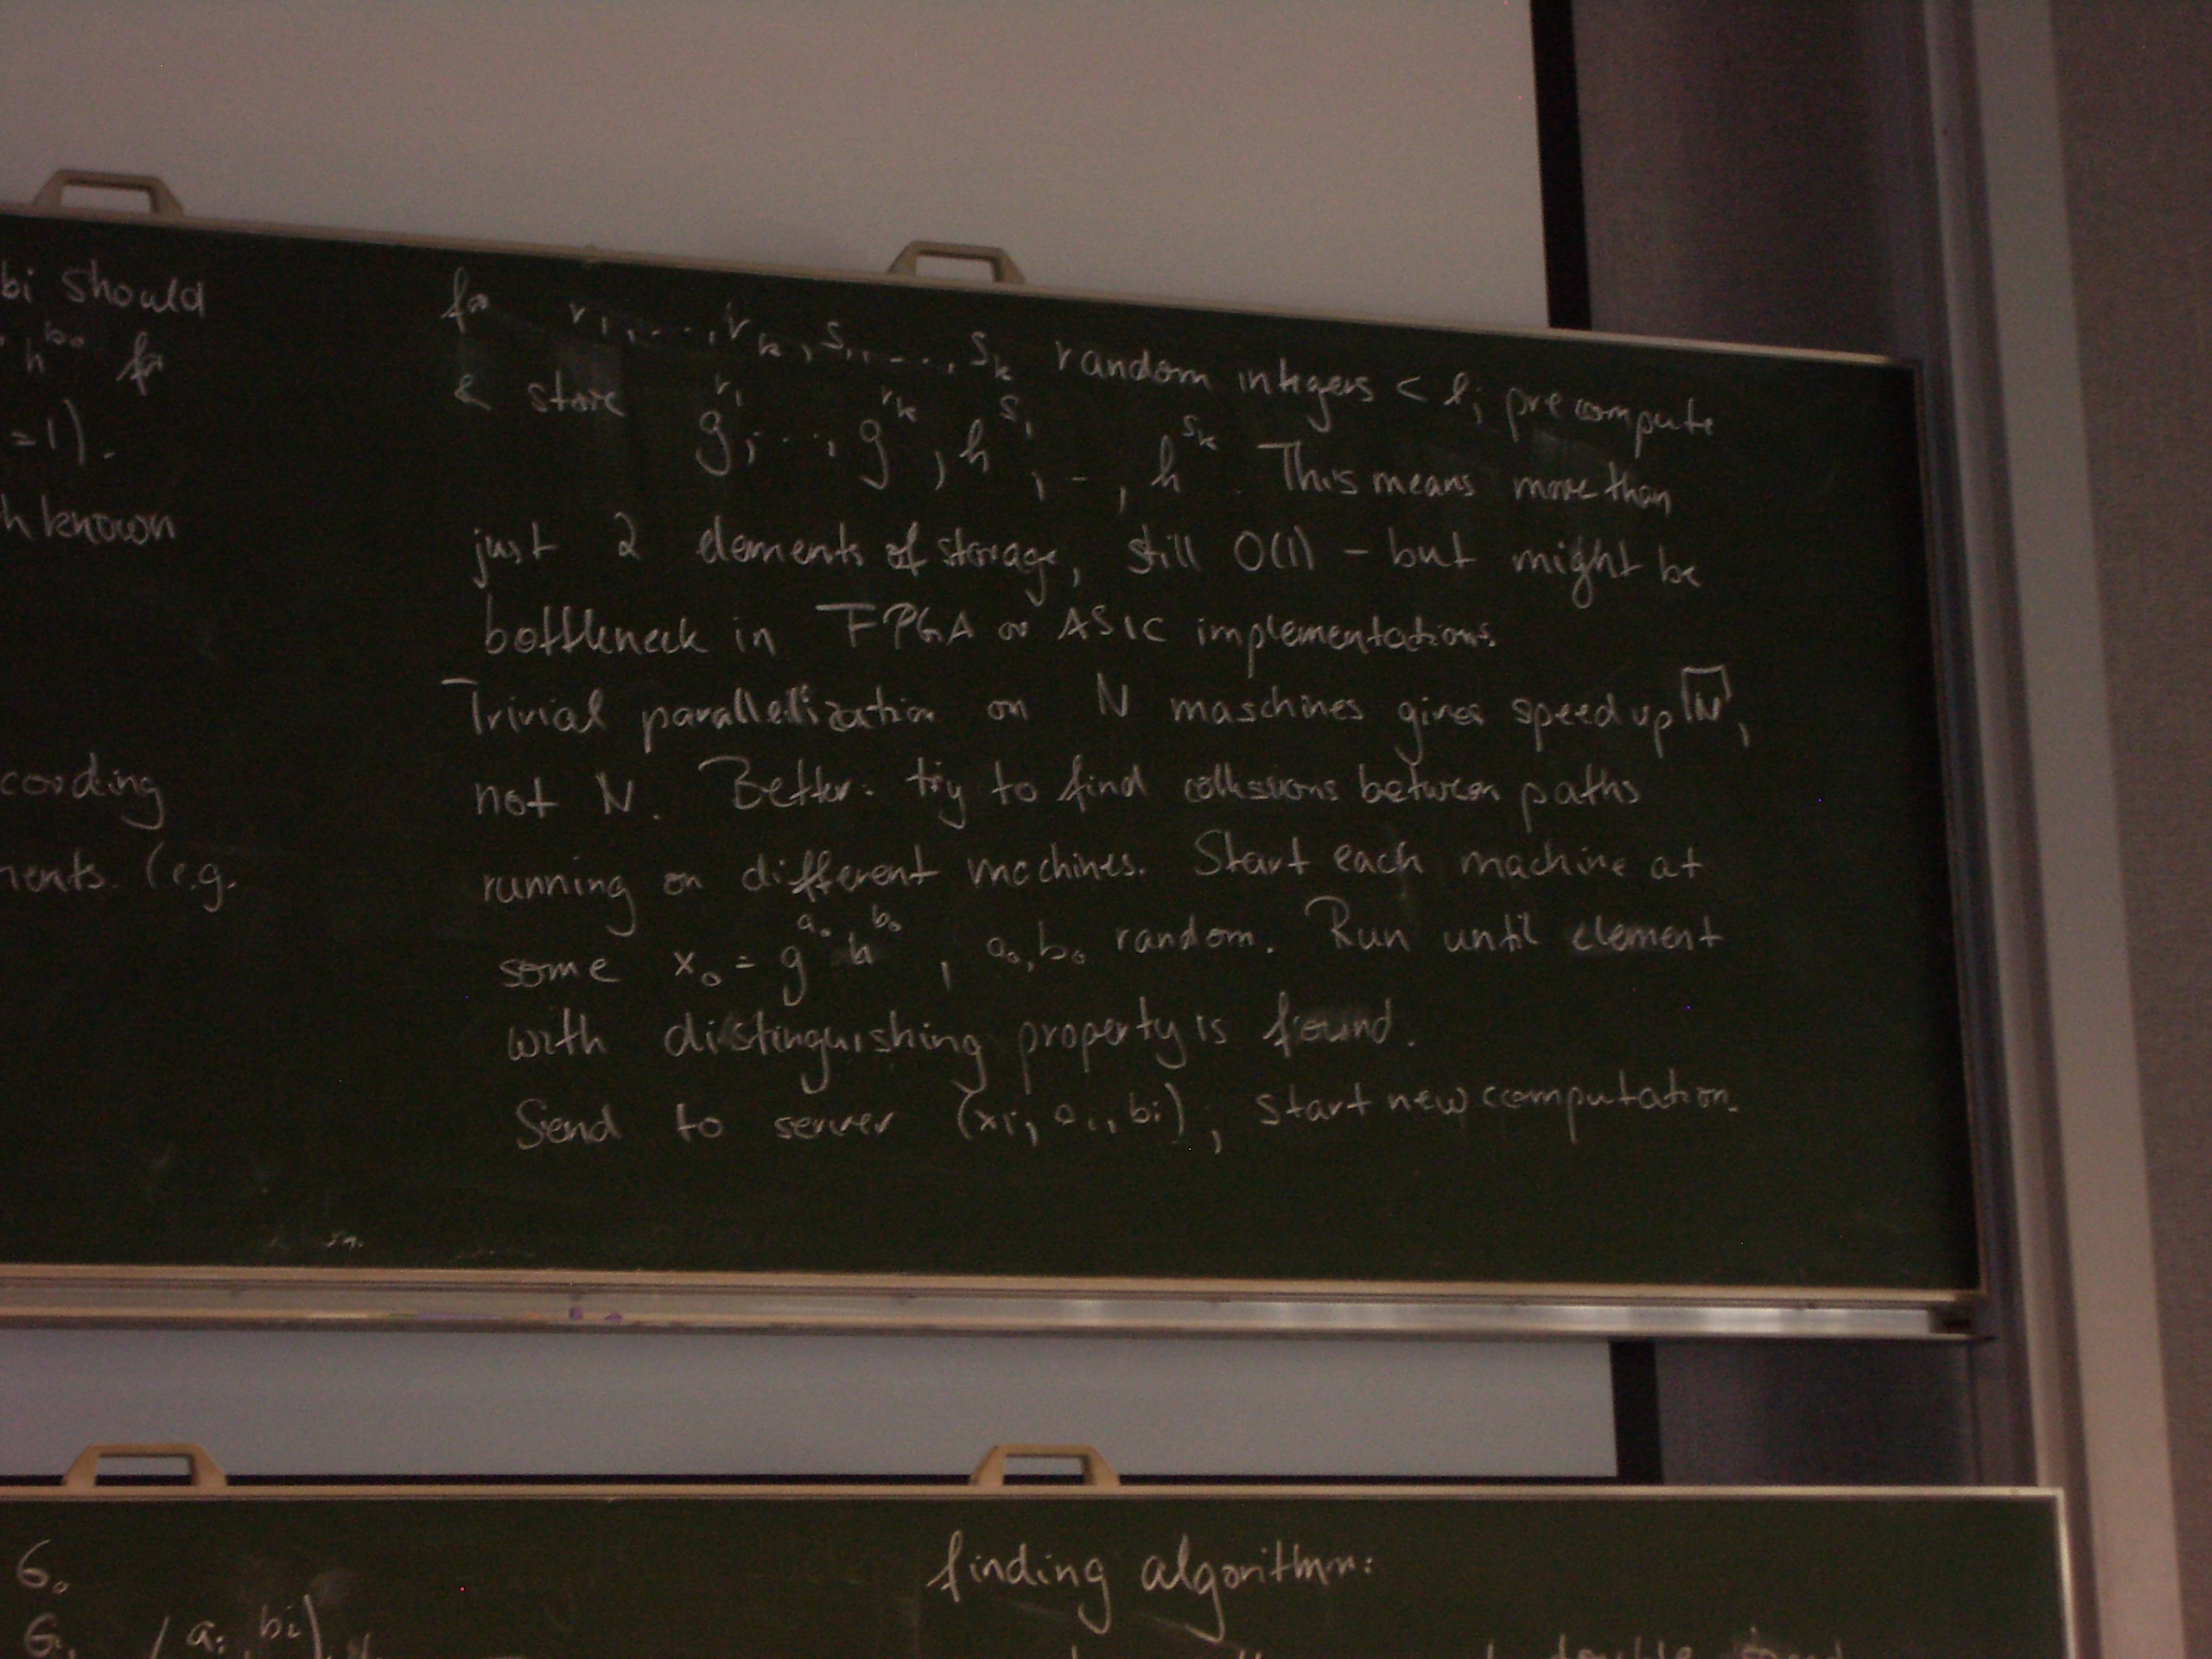 bi should
h^b₀ for
=1).
h known
cording
ments. (e.g.
for r₁,...,r_k, s₁,...,s_k random integers < l; precompute
& store g^r₁,..., g^r_k, h^s₁, -, h^s_k. This means more than
just 2 elements of storage, still O(1) - but might be
bottleneck in FPGA or ASIC implementations.
Trivial parallelization on N maschines gives speed up √N,
not N. Better: try to find collisions between paths
running on different machines. Start each machine at
some x₀ = g^a₀ h^b₀, a₀, b₀ random. Run until element
with distinguishing property is found.
Send to server (xi, ai, bi), start new computation.
G₀
Gi (ai, bi)
finding algorithm:
double